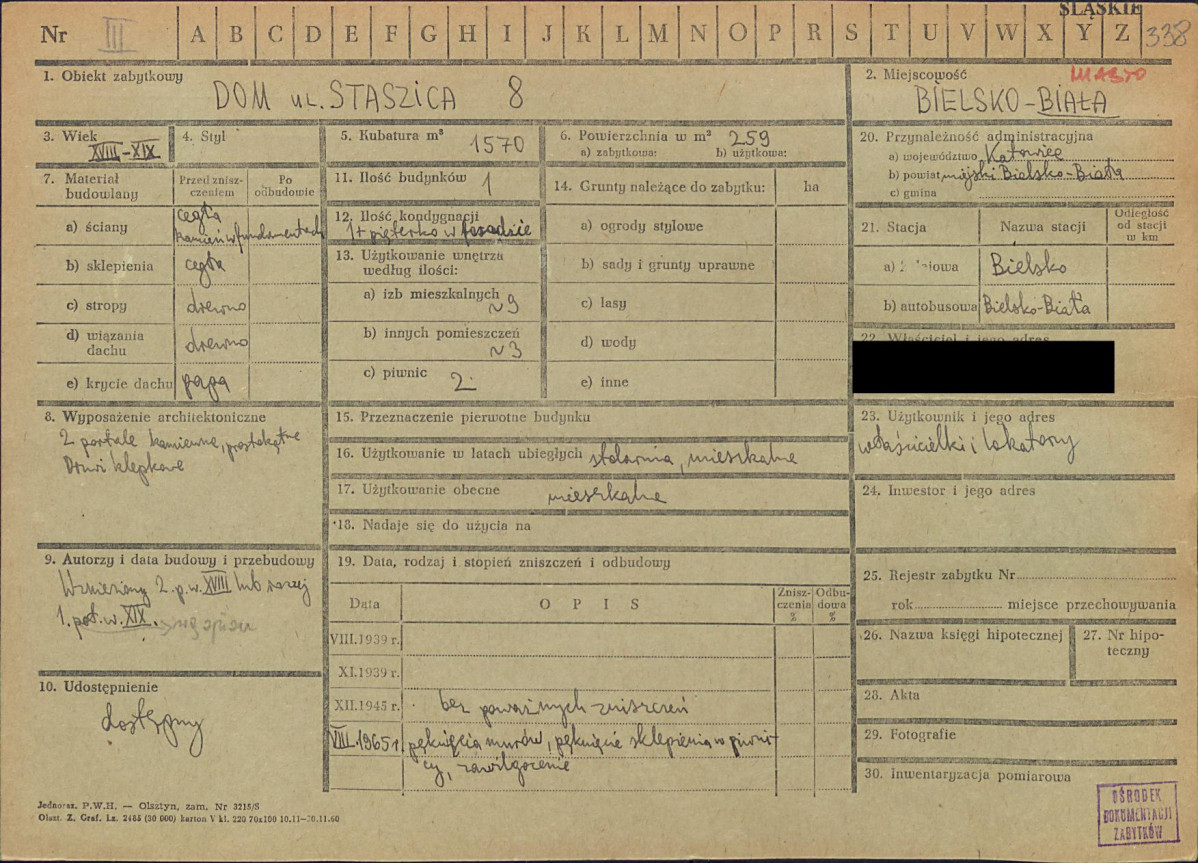 ŚLĄSKIE
Nr III A B C D E F G H I J K L M N O P R S T U V W X Y Z 338
1. Obiekt zabytkowy
DOM ul. STASZICA 8
2. Miejscowość
MIASTO
BIELSKO-BIAŁA
3. Wiek
XVIII-XIX
4. Styl
5. Kubatura m³
1570
6. Powierzchnia w m² 259
a) zabytkowa: b) użytkowa:
7. Materiał budowlany
Przed zniszczeniem
Po odbudowie
a) ściany cegła
kamień w fundamentach
b) sklepienia cegła
c) stropy drewno
d) wiązania dachu drewno
e) krycie dachu papa
8. Wyposażenie architektoniczne
2 portale kamienne, prostokątne
Drzwi klepkowe
9. Autorzy i data budowy i przebudowy
Wzniesiony 2. p. w. XVIII lub raczej
1. poł. w. XIX.
10. Udostępnienie
dostępny
11. Ilość budynków 1
12. Ilość kondygnacji
1 + pięterko w fasadzie
13. Użytkowanie wnętrza
według ilości:
a) izb mieszkalnych
~9
b) innych pomieszczeń
~3
c) piwnic 2
14. Grunty należące do zabytku: ha
a) ogrody stylowe
b) sady i grunty uprawne
c) lasy
d) wody
e) inne
15. Przeznaczenie pierwotne budynku
16. Użytkowanie w latach ubiegłych stolarnia, mieszkalne
17. Użytkowanie obecne mieszkalne
18. Nadaje się do użycia na
19. Data, rodzaj i stopień zniszczeń i odbudowy
Data OPIS Zniszczenia % Odbudowa %
VIII.1939 r.
XI.1939 r.
XII.1945 r. bez poważnych zniszczeń
VIII.1965 r pęknięcia murów, pęknięcie sklepienia w piwni-
cy, zawilgocenie
20. Przynależność administracyjna
a) województwo Katowice
b) powiat miejski Bielsko-Biała
c) gmina
21. Stacja Nazwa stacji Odległość od stacji w km
a) Bielsko
b) autobusowa Bielsko-Biała
22. Właściciel i jego adres
23. Użytkownik i jego adres
właścicielki i lokatorzy
24. Inwestor i jego adres
25. Rejestr zabytku Nr
rok miejsce przechowywania
26. Nazwa księgi hipotecznej
27. Nr hipoteczny
28. Akta
29. Fotografie
30. Inwentaryzacja pomiarowa
OŚRODEK
DOKUMENTACJI
ZABYTKÓW
Jednoraz. P.W.H. — Olsztyn, zam. Nr 3215/S
Olszt. Z. Graf. Lz. 2485 (30 000) karton V kl. 220 70x100 10.11—30.11.60